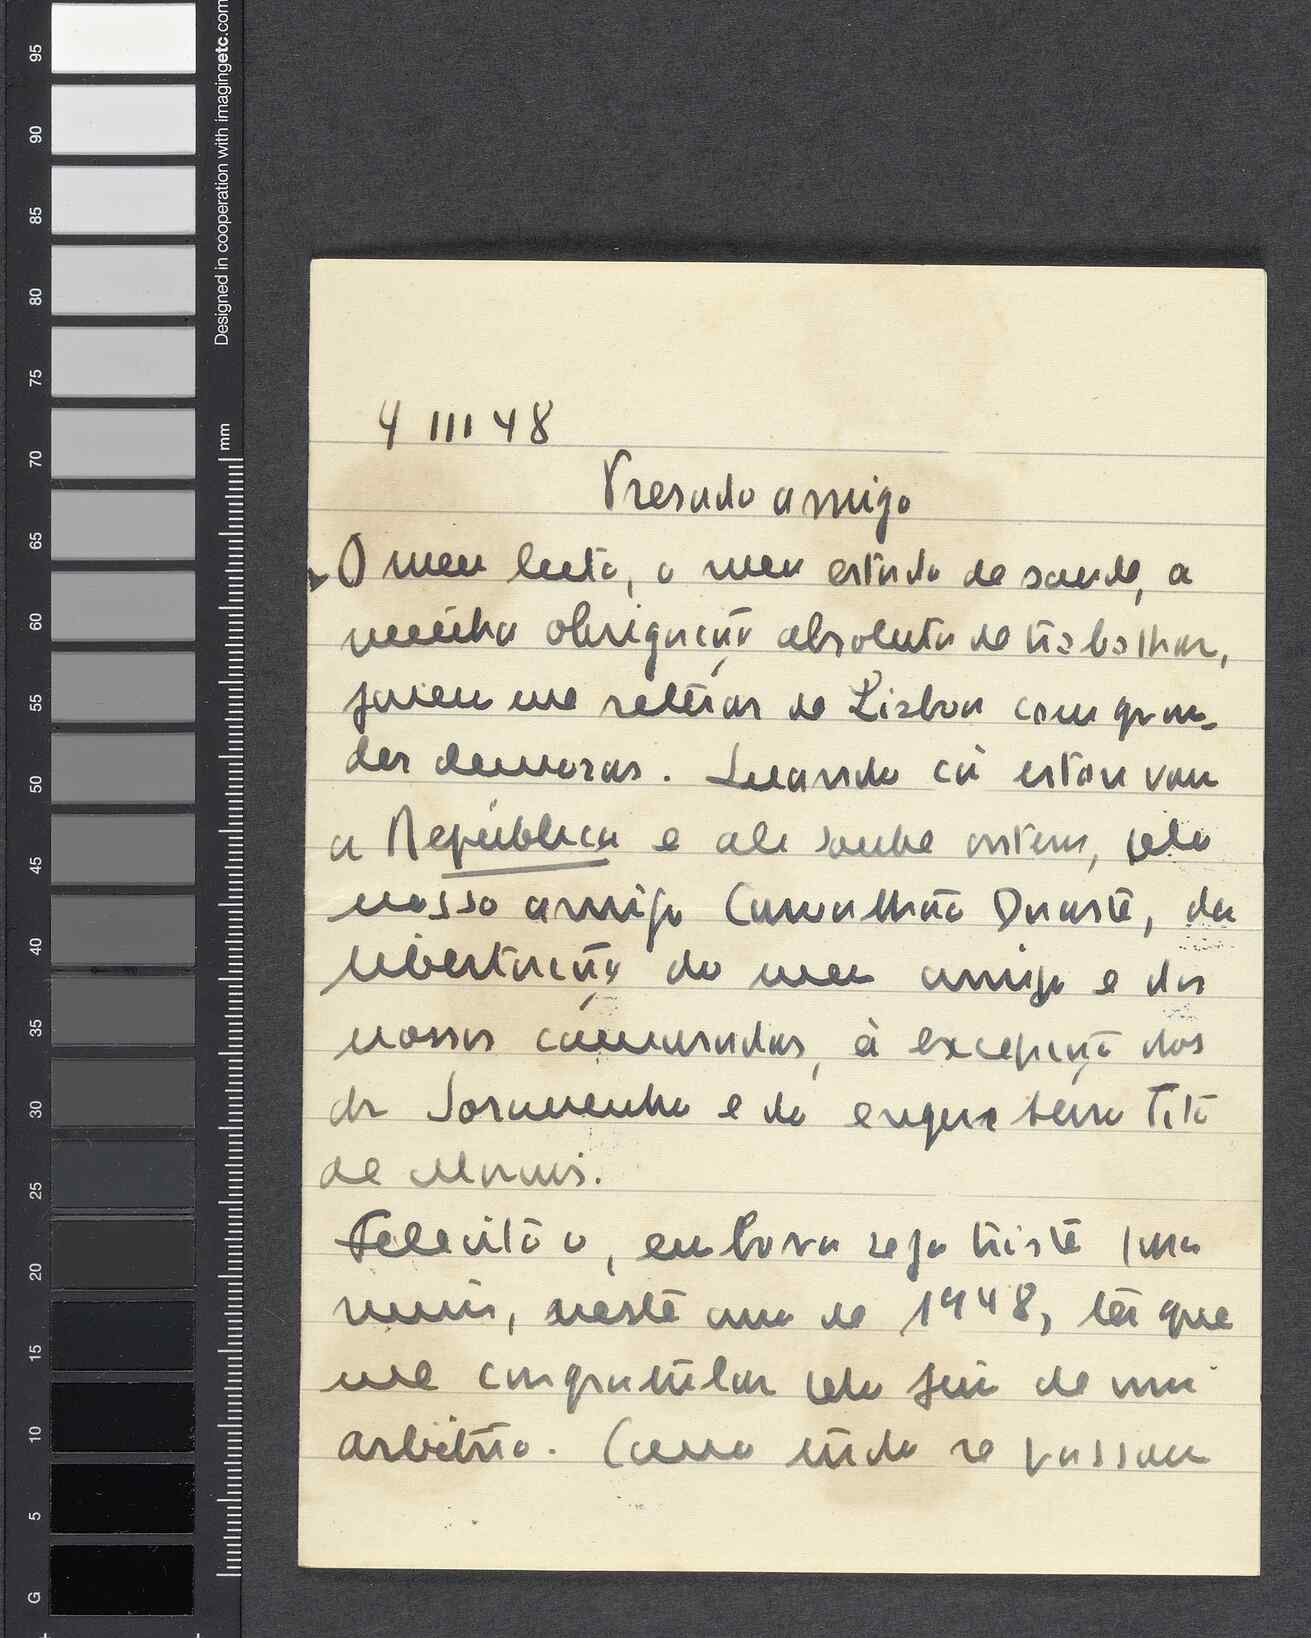 95
90
85
80
75
70
65
60
55
50
45
40
35
30
25
20
15
10
5
G
Designed in cooperation with imagingetc.com
mm
4 III 48
Presado amigo
O meu luto, o meu estado de saude, a
minha obrigação absoluta de trabalhar,
fazem me retirar de Lisboa com gran-
des demoras. Quando cá estou vou
a República e ali soube ontem, pelo
nosso amigo Carvalhão Duarte, da
libertação do meu amigo e dos
nossos camaradas, à excepção dos
dr Soramenho e do engenheiro Tito
de Morais.
Felicito o, embora seja triste para
mim, neste ano de 1948, ter que
me congratular pelo fim de um
arbitrio. Como tudo se passou